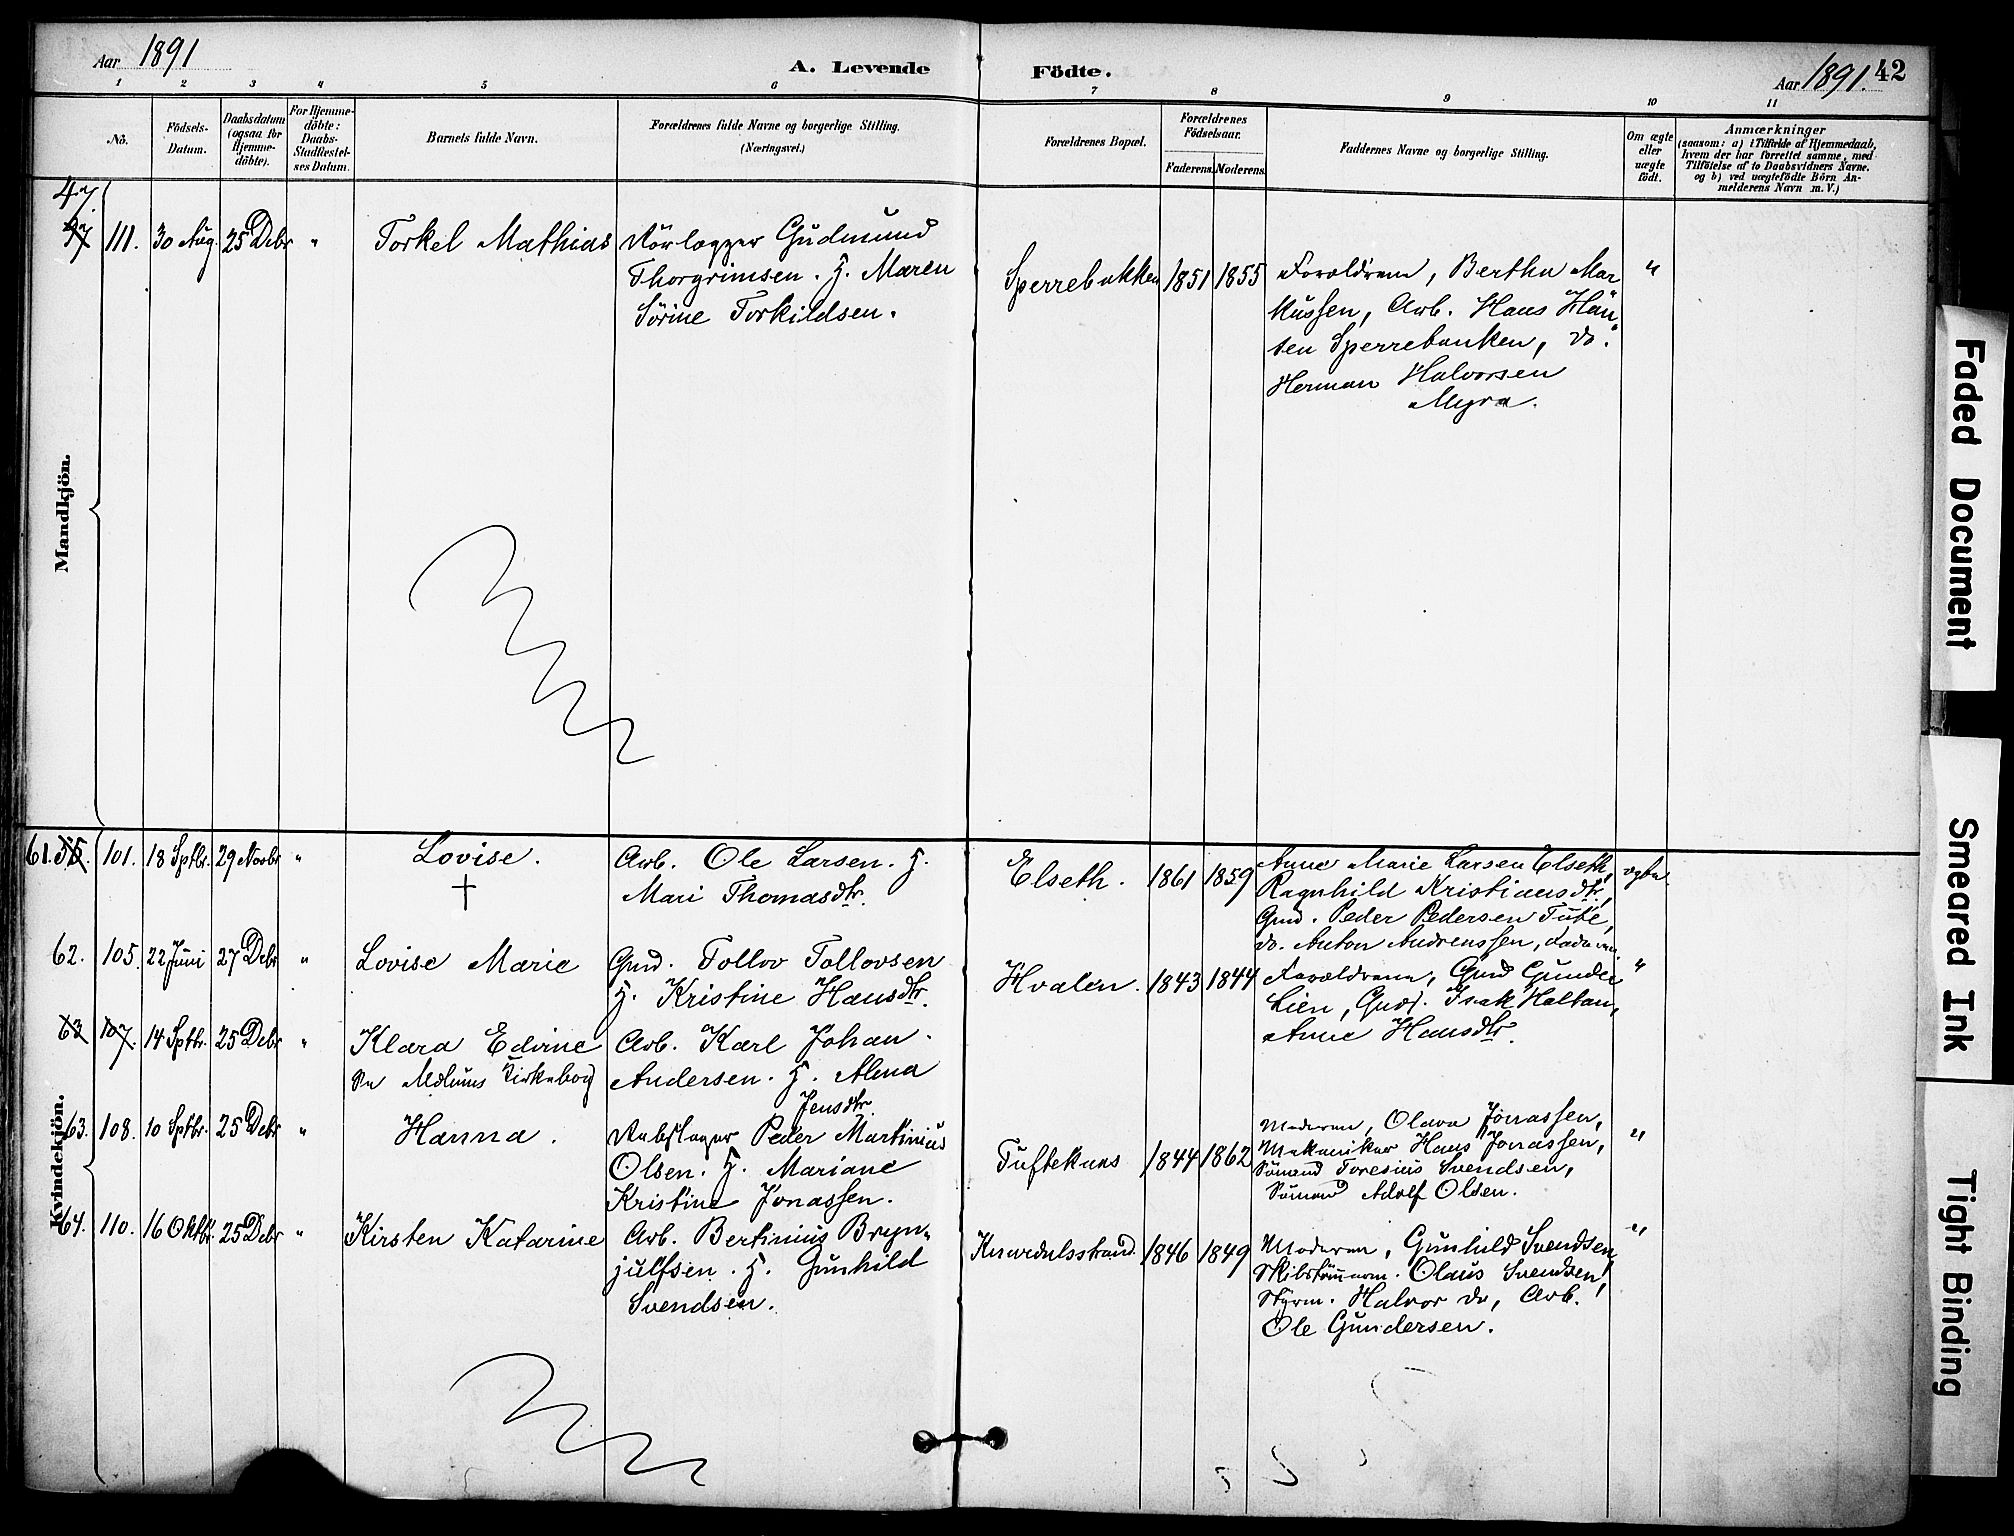 Aar 1891
A. Levende Födte.
Aar 1891. 42
1 2 3 4 5 6 7 8 9 10 11
No.
Födsels-
Datum.
Daabsdatum
(ogsaa for
Hjemme-
döbte).
For Hjemme-
döbte:
Daabs-
Stadfæstel-
ses Datum.
Barnets fulde Navn.
Forældrenes fulde Navne og borgerlige Stilling.
(Næringsvei.)
Forældrenes Bopæl.
Forældrenes
Födselsaar.
Faderens. Moderens.
Faddernes Navne og borgerlige Stilling.
Om ægte
eller
uægte
födt.
Anmærkninger
(saasom: a) i Tilfælde af Hjemmedaab,
hvem der har forrettet samme, med
Tilföielse af to Daabsvidners Navne,
og b) ved uægtefödte Börn An-
melderens Navn m. V.)
Mandkjön.
47
111. 30 Aug. 25 Debr " Torkel Mathias
Rörlægger Gudmund
Thorgrimsen. H. Maren
Sörine Torkildsen.
Sperrebakken 1851 1855
Forældrene, Berthe Mar
kussen, Arb. Hans Han
sen Sperrebakken, do.
Herman Halvorsen
Myra.
"
Kvindekjön.
61. 55. 101. 18 Sptbr. 29 Novbr " Lovise.
†
Arb. Ole Larsen. H.
Mari Thomasdtr.
Elseth. 1861 1859
Anne Marie Larsen Elseth,
Ragnhild Kristiansdtr,
Gmd. Peder Pedersen Tufte,
do. Anton Andreassen,
ægte.
62. 105. 22 Juni 27 Debr " Lovise Marie
Gmd. Tollov Tollovsen
H. Kristine Hansdtr.
Hvalen. 1843 1844
Forældrene, Gmd Gunder
Lien, Gmd. Isak Holtan,
Anne Hansdtr.
"
63 107. 14 Sptbr. 25 Debr " Klara Edvine
Se Melums Kirkebog
Arb. Karl Johan
Andersen. H. Alena
Jensdtr.
63. 108. 10 Sptbr. 25 Debr " Hanna.
Rebslager Peder Martinius
Olsen. H. Mariane
Kristine Jonassen.
Tuftekaas 1844 1862
Moderen, Olava Jonassen,
Mekaniker Hans Jonassen,
Sömand Toresius Svendsen,
Sömand Adolf Olsen.
"
64. 110. 16 Oktbr. 25 Debr " Kirsten Katarine
Arb. Bertinius Bryn-
julfsen. H. Gunhild
Svendsen.
Knardalsstrand 1846 1849
Moderen, Gunhild Svendsen,
Skibstömmerm. Olaus Svendsen,
Styrm. Halvor do, Arb.
Ole Gundersen.
"
Faded Document
Smeared Ink
Tight Binding